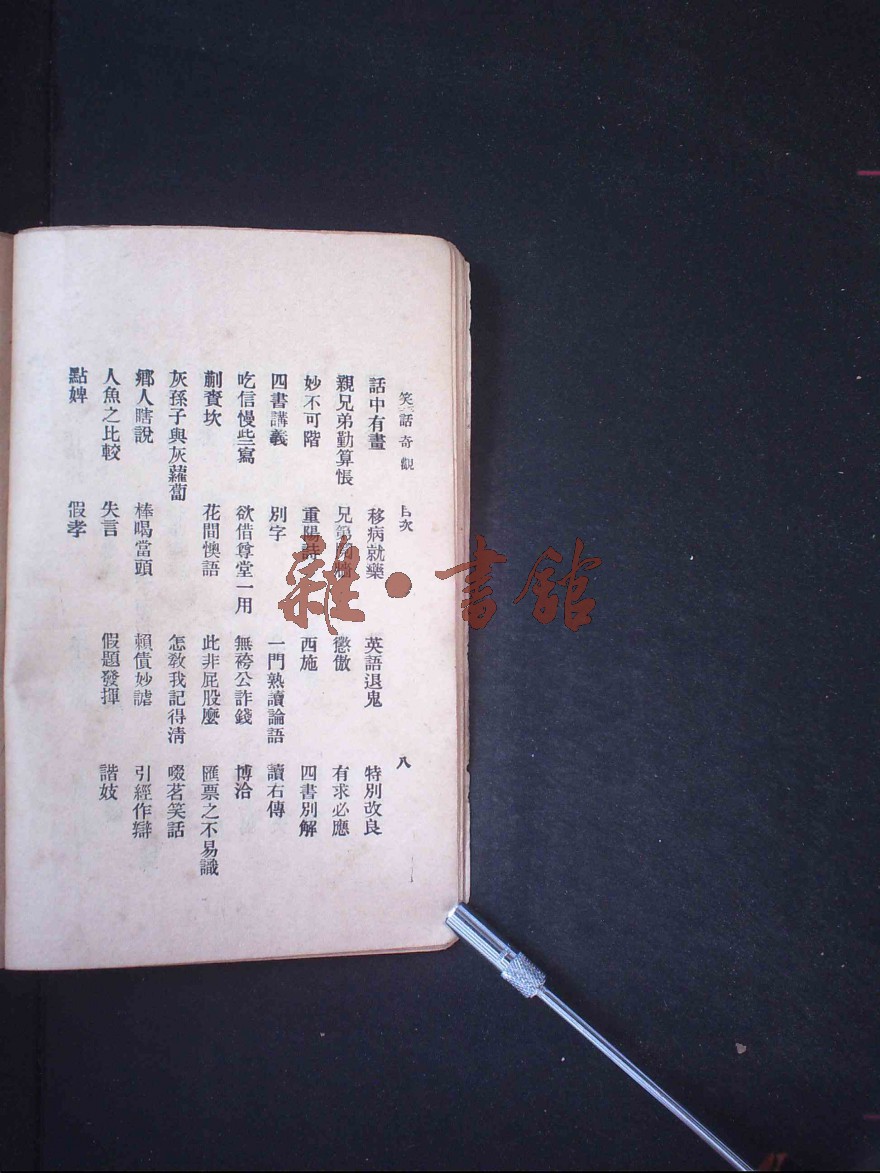 笑話奇觀 目次 八
話中有畫 移病就藥 英語退鬼 特別改良
親兄弟勤算帳 兄弟 懲傲 有求必應
妙不可階 重陽詩 西施 四書別解
四書講義 別字 一門熟讀論語 讀右傳
吃信慢些寫 欲借尊堂一用 無袴公詐錢 博洽
劘賚坎 花間懊語 此非屁股麼 匯票之不易識
灰孫子與灰蘿蔔 怎敎我記得淸 啜茗笑話
鄉人瞎說 棒喝當頭 賴債妙謔 引經作辯
人魚之比較 失言 假題發揮 諧妓
點婢 假孝
雜·書館